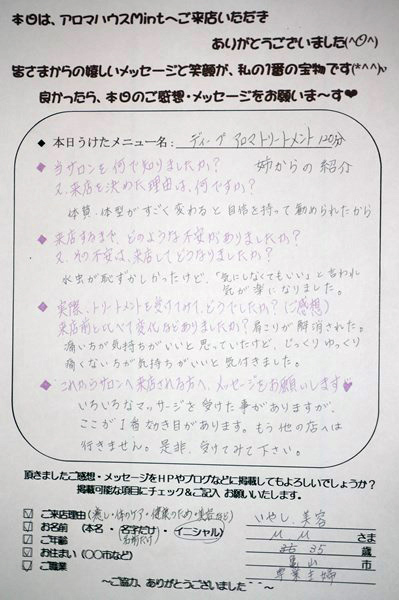 本日は、アロマハウスMintへご来店いただき
ありがとうございました(^O^)
皆さまからの嬉しいメッセージと笑顔が、私の1番の宝物です(*^^*)v
良かったら、本日のご感想・メッセージをお願いま〜す♥
◆ 本日うけたメニュー名: ディープ アロマトリートメント 120分
◆ 当サロンを何で知りましたか? 姉からの紹介
又、来店を決めた理由は、何ですか?
体質・体型がすごく変わると自信を持って勧められたから
◆ 来店するまで、どのような不安がありましたか?
又、その不安は、来店してどうなりましたか?
水虫が恥ずかしかったけど、「気にしなくてもいい」と言われ
気が楽になりました。
◆ 実際、トリートメントを受けてみて、どうでしたか?(ご感想)
来店前とくらべて変化などありましたか? 肩こりが解消された。
痛い方が気持ちがいいと思っていたけど、じっくりゆっくり
痛くない方が気持ちがいいと気付きました。
◆ これからサロンへ来店される方へ、メッセージをお願いします♥
いろいろなマッサージを受けた事がありますが、
ここが1番効き目があります。もう他の店へは
行きません。是非、受けてみて下さい。
頂きましたご感想・メッセージをHPやブログなどに掲載してもよろしいでしょうか?
掲載可能な項目にチェック&ご記入 お願いいたします。
☑ ご来店理由(癒し・体のケア・健康のため・美容など) いやし、美容
☑ お名前 (本名・名字だけ・名前だけ・イニシャル) M.M さま
☑ ご年齢 35 歳
☑ お住まい (○○市など) 亀山 市
☑ ご職業 専業主婦
〜ご協力、ありがとうございました〜